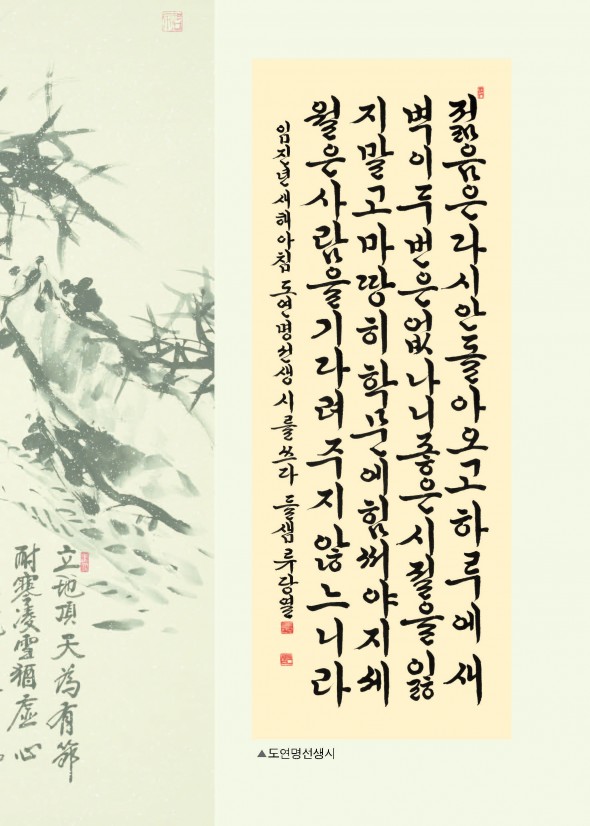 젊음은 다시 안 돌아오고 하루에 새
벽이 두 번은 없나니 좋은 시절을 잃
지 말고 마땅히 학문에 힘써야지 세
월은 사람을 기다려 주지 않느니라
임진년 새해 아침 도연명선생 시를 쓰다 들샘
▲도연명선생시
立地頂天為有節
耐寒凌雪猶虛心